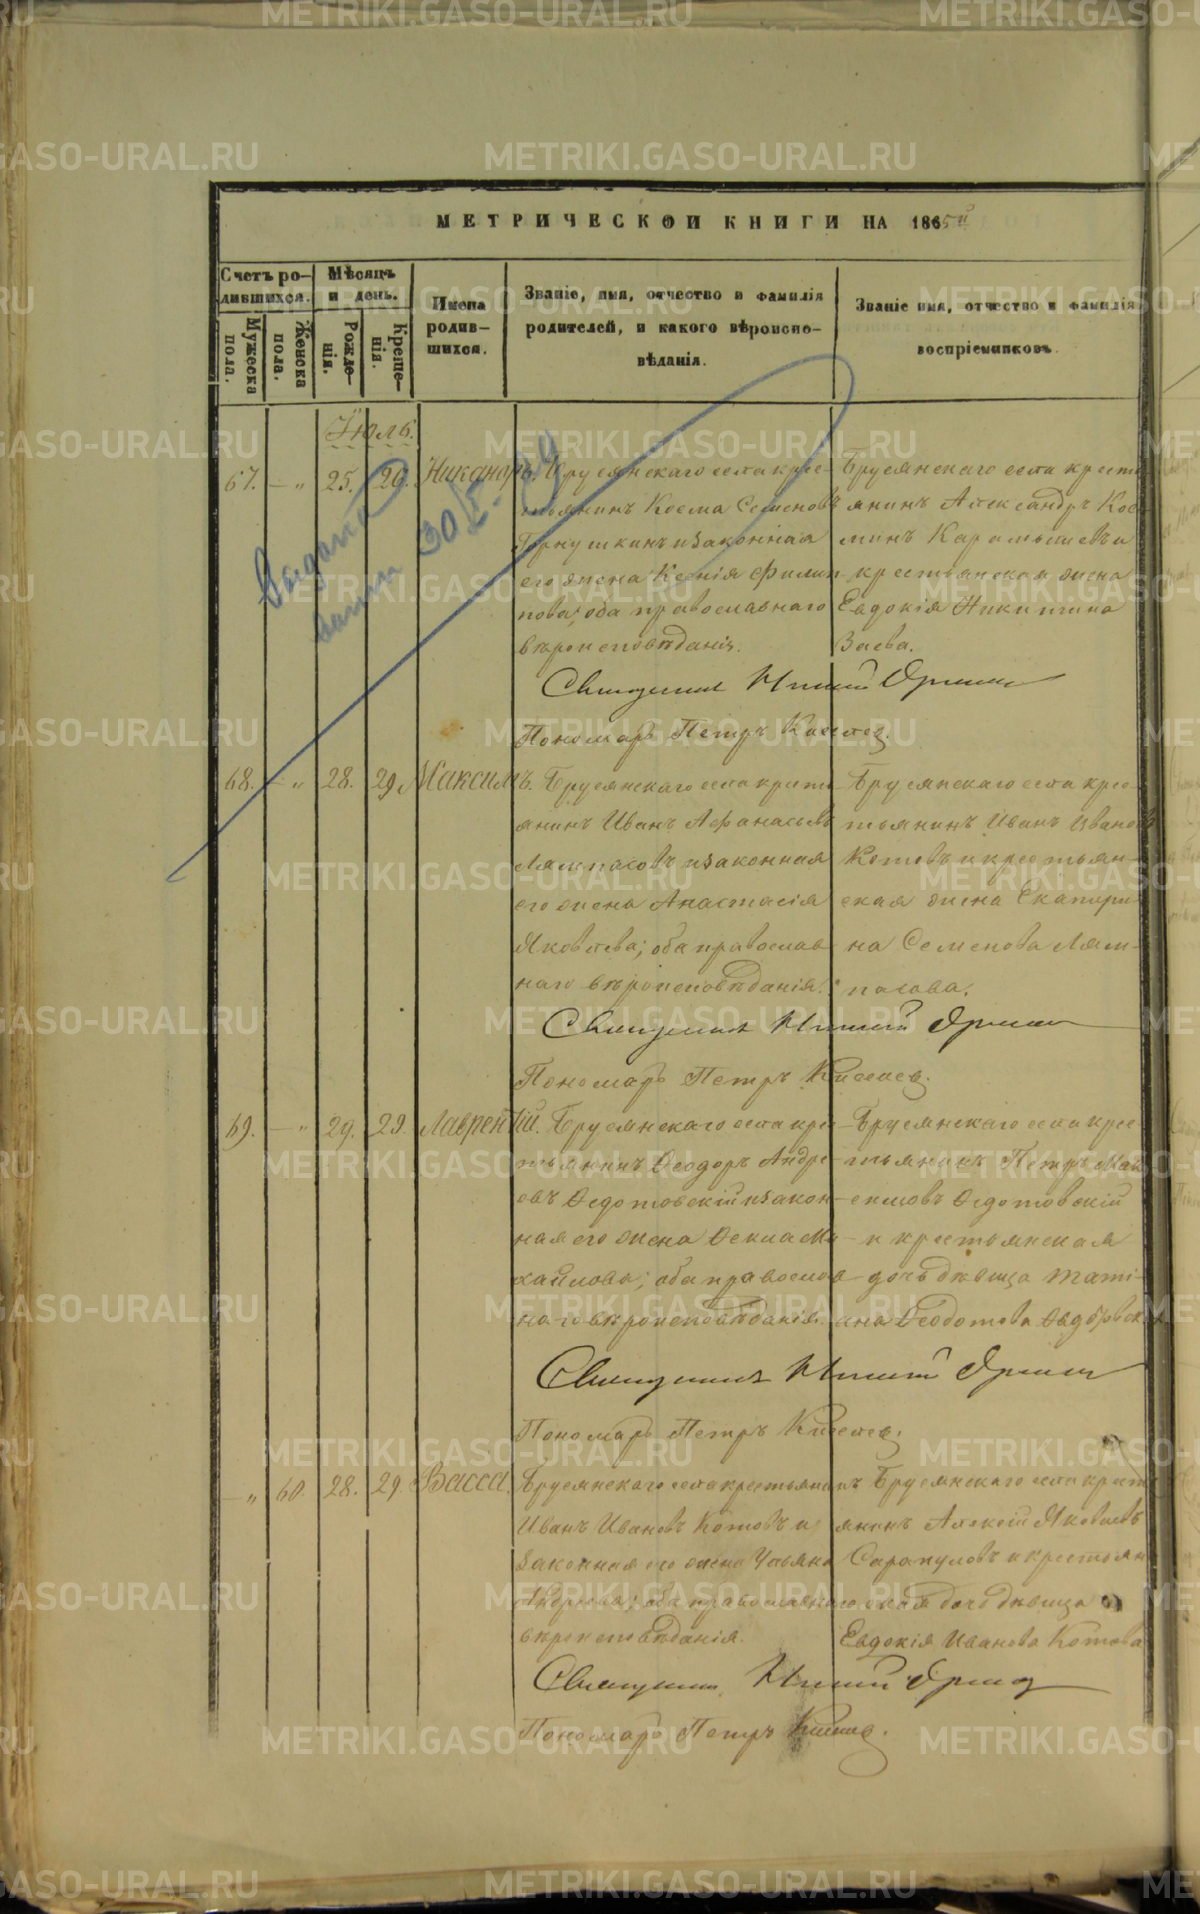 МЕТРИЧЕСКОЙ КНИГИ НА 1865й
Счетъ ро-
дившихся.
Мѣсяцъ
и день.
Имена
родив-
шихся.
Званіе, имя, отчество и фамилія
родителей, и какого вѣроиспо-
вѣданія.
Званіе имя, отчество и фамилія
воспріемниковъ.
Мужеска
пола.
Женска
пола.
Рожде-
нія.
Креще-
нія.
Іюль.
67. — „ 25. 26. Никаноръ.
Бруснянскаго села крес-
тьянинъ Косма Семеновъ
Горнушкинъ и законная
его жена Ксенія Филип-
пова; оба православнаго
вѣроисповѣданія.
Бруснянскаго села кресть
янинъ Александръ Кос-
минъ Карамышевъ и
крестьянская жена
Евдокія Никитина
Заева.
Священникъ
Пономарь Петръ Киселев.
68. — „ 28. 29. Максимъ.
Бруснянскаго села кресть
янинъ Иванъ Афанасьевъ
Лямпасовъ и законная
его жена Анастасія
Яковлева; оба православ
наго вѣроисповѣданія.
Бруснянскаго села крес-
тьянинъ Иванъ Ивановъ
Котовъ и крестьян-
ская жена Екатери-
на Семенова Лям-
пасова.
Священникъ
Пономарь Петръ Киселев.
69. — „ 29. 29. Лаврентій.
Бруснянскаго села крес-
тьянинъ Ѳеодоръ Андре-
евъ Ѳедотовскій и закон-
ная его жена Ѳекла Ми-
хайлова; оба православ-
наго вѣроисповѣданія.
Бруснянскаго села крес-
тьянинъ Петръ Мак-
симовъ Ѳедотовскій
и крестьянская
дочь дѣвица Тати-
ана Ѳеодотова
Священникъ
Пономарь Петръ Киселев.
— „ 60. 28. 29. Васса.
Бруснянскаго села крестьянинъ
Иванъ Ивановъ Котовъ и
законная его жена Ульяна
Андреева; оба православнаго
вѣроисповѣданія.
Бруснянскаго села кресть
янинъ Алексій Яковлевъ
Сарапуловъ и крестьян
ская дочь дѣвица
Евдокія Иванова Котова
Священникъ
Пономарь Петръ Киселев.
Выдана
METRIKI.GASO-URAL.RU